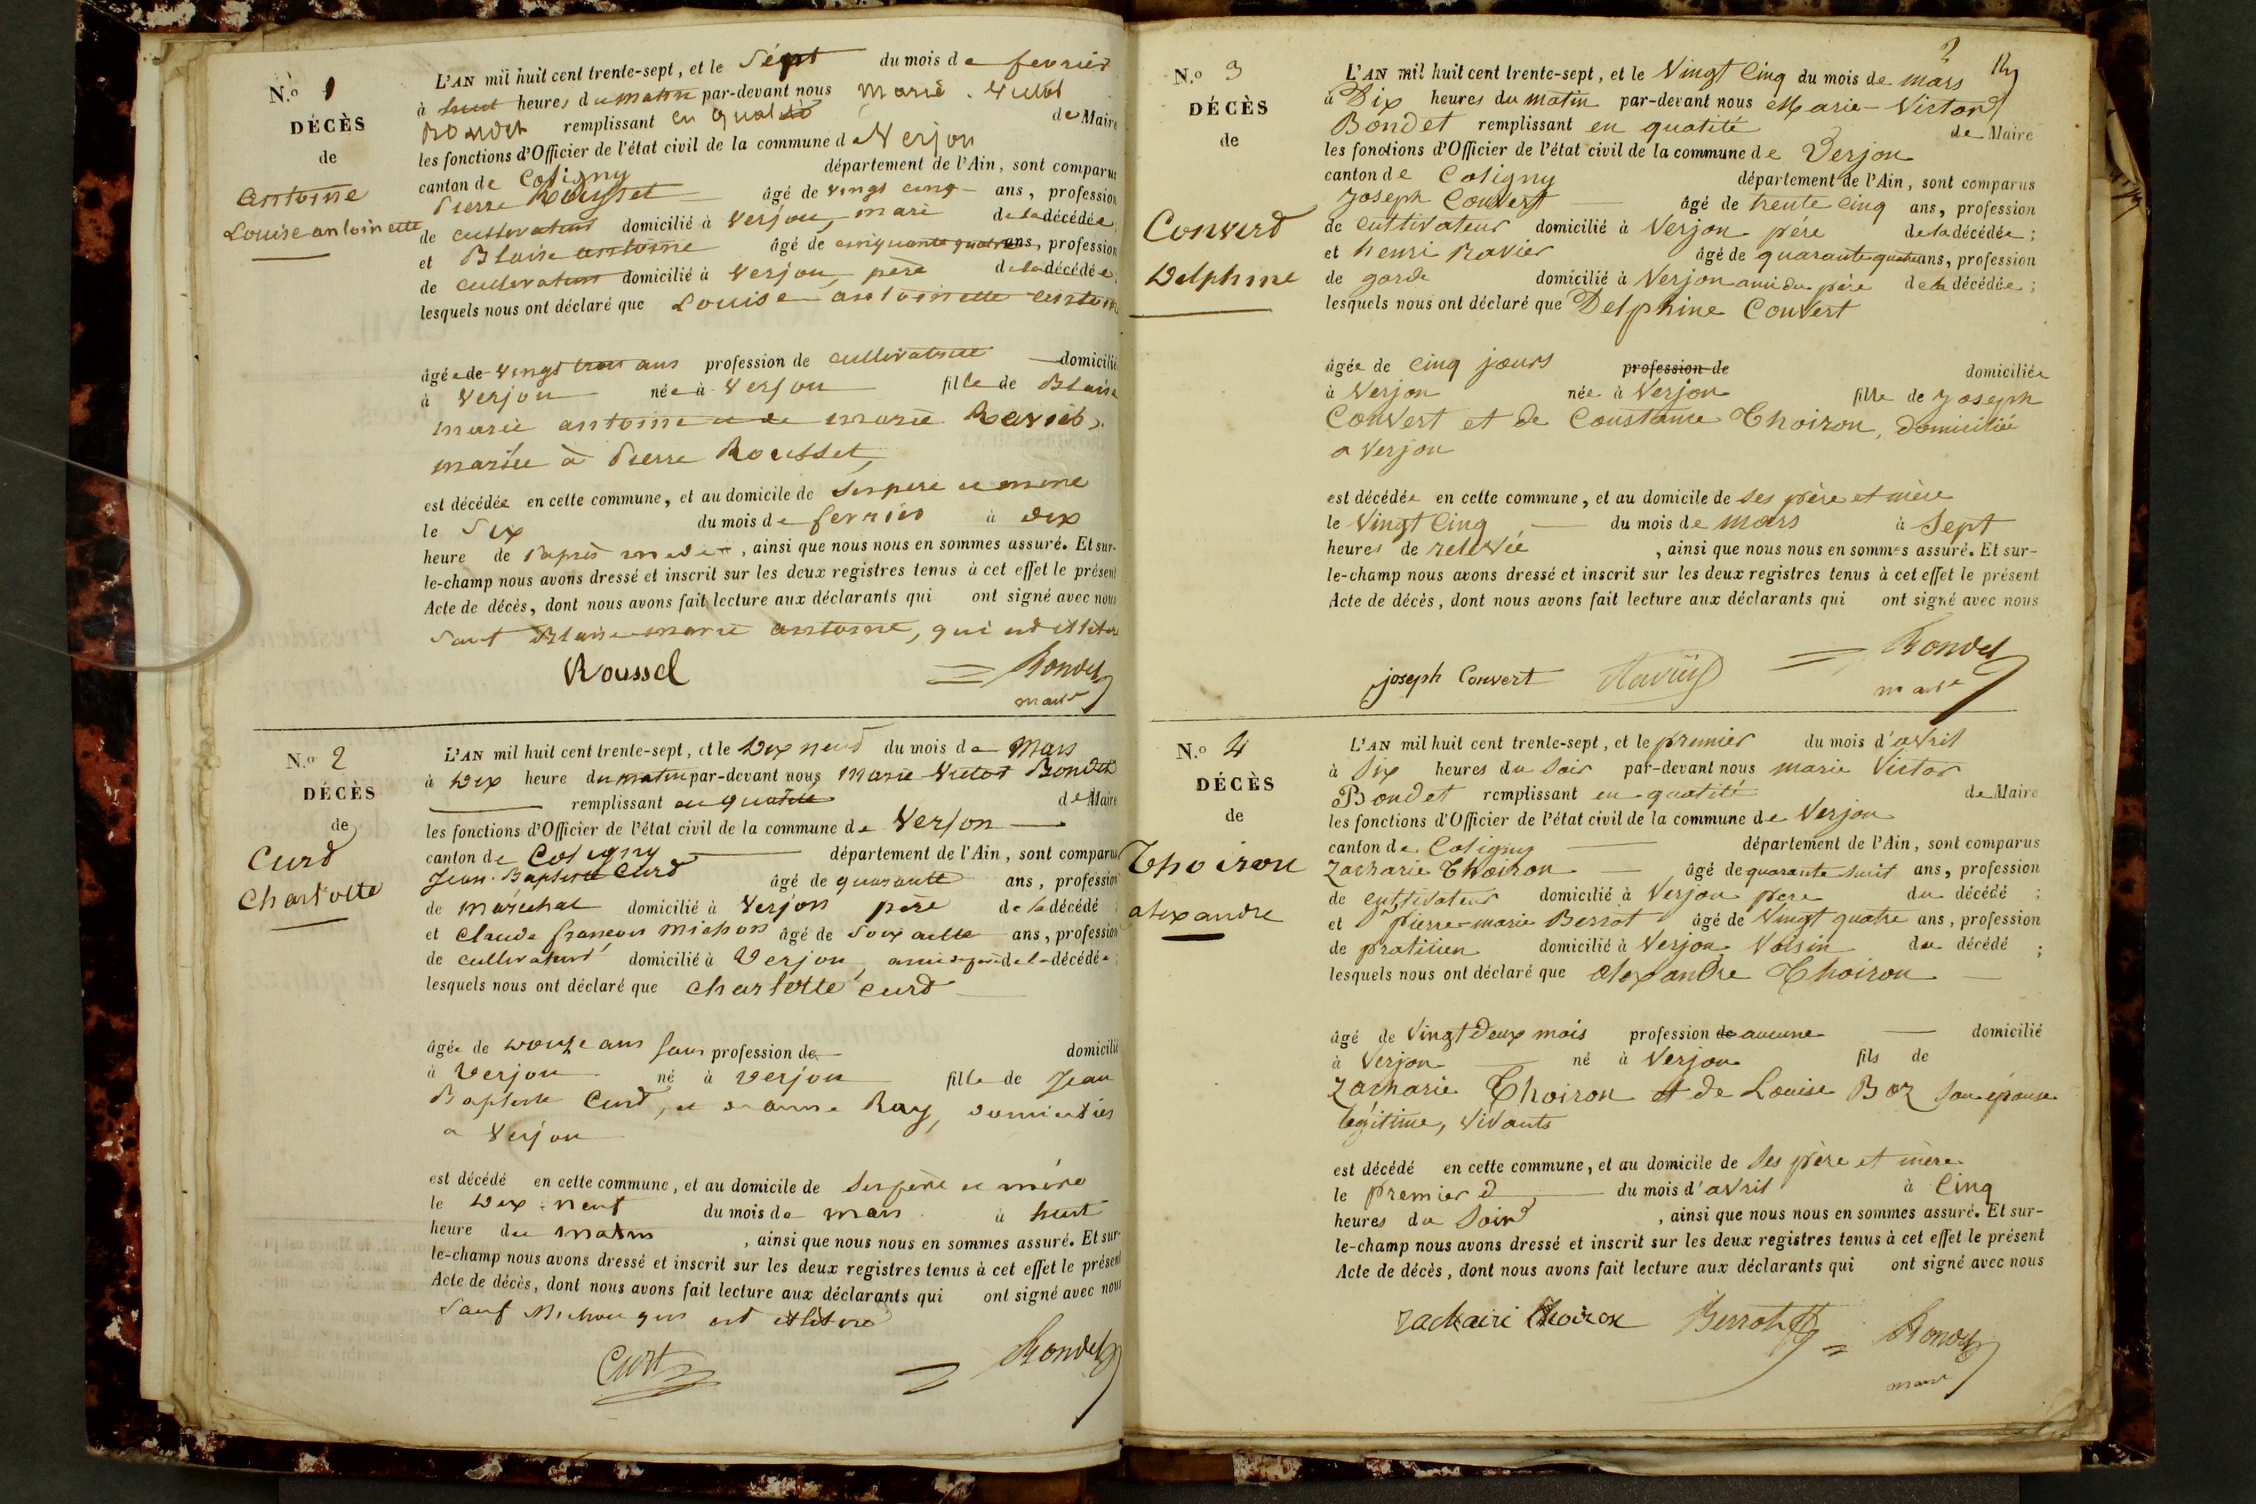 N.º 1
DÉCÈS
de
Antoine
Louise antoinette
L'AN mil huit cent trente-sept, et le Sept du mois de fevrier
à huit heures du matin par-devant nous Marie Victor
Bondet remplissant en qualité de Maire
les fonctions d'Officier de l'état civil de la commune de Verjon
canton de Coligny département de l'Ain, sont comparus
Pierre Rousset âgé de vingt cinq ans, profession
de cultivateur domicilié à Verjon, mari de la décédée
et Blaise antoine âgé de cinquante quatre ans, profession
de cultivateur domicilié à Verjon, père de la décédée
lesquels nous ont déclaré que Louise antoinette antoine
âgée de vingt trois ans profession de cultivatrice domicilié
à Verjon née à Verjon fille de Blaise
marie antoine et de marie Ravier
mariée à Pierre Rousset,
est décédée en cette commune, et au domicile de ses père et mère
le Six du mois de fevrier à dix
heure de l'après , ainsi que nous nous en sommes assuré. Et sur-
le-champ nous avons dressé et inscrit sur les deux registres tenus à cet effet le présent
Acte de décès, dont nous avons fait lecture aux déclarants qui ont signé avec nous
Sauf Blaise marie antoine, qui est illitéré
Roussel Bondet
maire
N.º 2
DÉCÈS
de
Curd
Charlotte
L'AN mil huit cent trente-sept, et le Dix neuf du mois de Mars
à Dix heure du matin par-devant nous Marie Victor Bondet
remplissant en qualité de Maire
les fonctions d'Officier de l'état civil de la commune de Verjon
canton de Coligny département de l'Ain, sont comparus
Jean-Baptiste Curd âgé de quarante ans, profession
de maréchal domicilié à Verjon père de la décédé
et Claude françois Michon âgé de Soixante ans, profession
de cultivateur domicilié à Verjon, ami du père de la décédée
lesquels nous ont déclaré que Charlotte Curd
âgée de douze ans sans profession de domicilié
à Verjon né à Verjon fille de Jean
Baptiste Curd, et Ray, domiciliés
a Verjon
est décédé en cette commune, et au domicile de ses père et mère
le Dix-neuf du mois de mars à huit
heure du matin , ainsi que nous nous en sommes assuré. Et sur-
le-champ nous avons dressé et inscrit sur les deux registres tenus à cet effet le présent
Acte de décès, dont nous avons fait lecture aux déclarants qui ont signé avec nous
Sauf Michon qui est illitéré
Curt Bondet
N.º 3
DÉCÈS
de
Converd
Delphine
L'AN mil huit cent trente-sept, et le Vingt Cinq du mois de mars
à Dix heures du matin par-devant nous Marie-Victor
Bondet remplissant en qualité de Maire
les fonctions d'Officier de l'état civil de la commune de Verjon
canton de Coligny département de l'Ain, sont comparus
Joseph Convert âgé de trente cinq ans, profession
de cultivateur domicilié à Verjon père de la décédée;
et henri Ravier âgé de quarante quatre ans, profession
de garde domicilié à Verjon ami du père de la décédée;
lesquels nous ont déclaré que Delphine Convert
âgée de cinq jours profession de domiciliée
à Verjon née à Verjon fille de Joseph
Convert et de Constance Thoiron, domiciliée
a Verjon
est décédée en cette commune, et au domicile de ses père et mère
le Vingt Cinq du mois de mars à Sept
heures de relevée , ainsi que nous nous en sommes assuré. Et sur-
le-champ nous avons dressé et inscrit sur les deux registres tenus à cet effet le présent
Acte de décès, dont nous avons fait lecture aux déclarants qui ont signé avec nous
joseph Convert Ravier Bondet
maire
N.º 4
DÉCÈS
de
Thoiron
alexandre
L'AN mil huit cent trente-sept, et le premier du mois d'avril
à Six heures du Soir par-devant nous marie Victor
Bondet remplissant en qualité de Maire
les fonctions d'Officier de l'état civil de la commune de Verjon
canton de Coligny département de l'Ain, sont comparus
Zacharie Thoiron âgé de quarante huit ans, profession
de cultivateur domicilié à Verjon père du décédé ;
et pierre-marie Berrot âgé de Vingt quatre ans, profession
de praticien domicilié à Verjon Voisin du décédé ;
lesquels nous ont déclaré que alexandre Thoiron
âgé de Vingt Deux mois profession de aucune domicilié
à Verjon né à Verjon fils de
Zacharie Thoiron et de Louise Boz son épouse
légitime, vivants
est décédé en cette commune, et au domicile de ses père et mère
le premier d du mois d'avril à Cinq
heures du Soir , ainsi que nous nous en sommes assuré. Et sur-
le-champ nous avons dressé et inscrit sur les deux registres tenus à cet effet le présent
Acte de décès, dont nous avons fait lecture aux déclarants qui ont signé avec nous
Zachairi Thoiron Berrot Bondet
maire